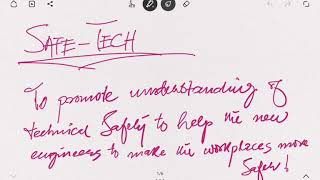 SAFE-TECH
To promote understanding of
technical Safety to help the new
engineers to make the workplaces more
Safer!
1/6